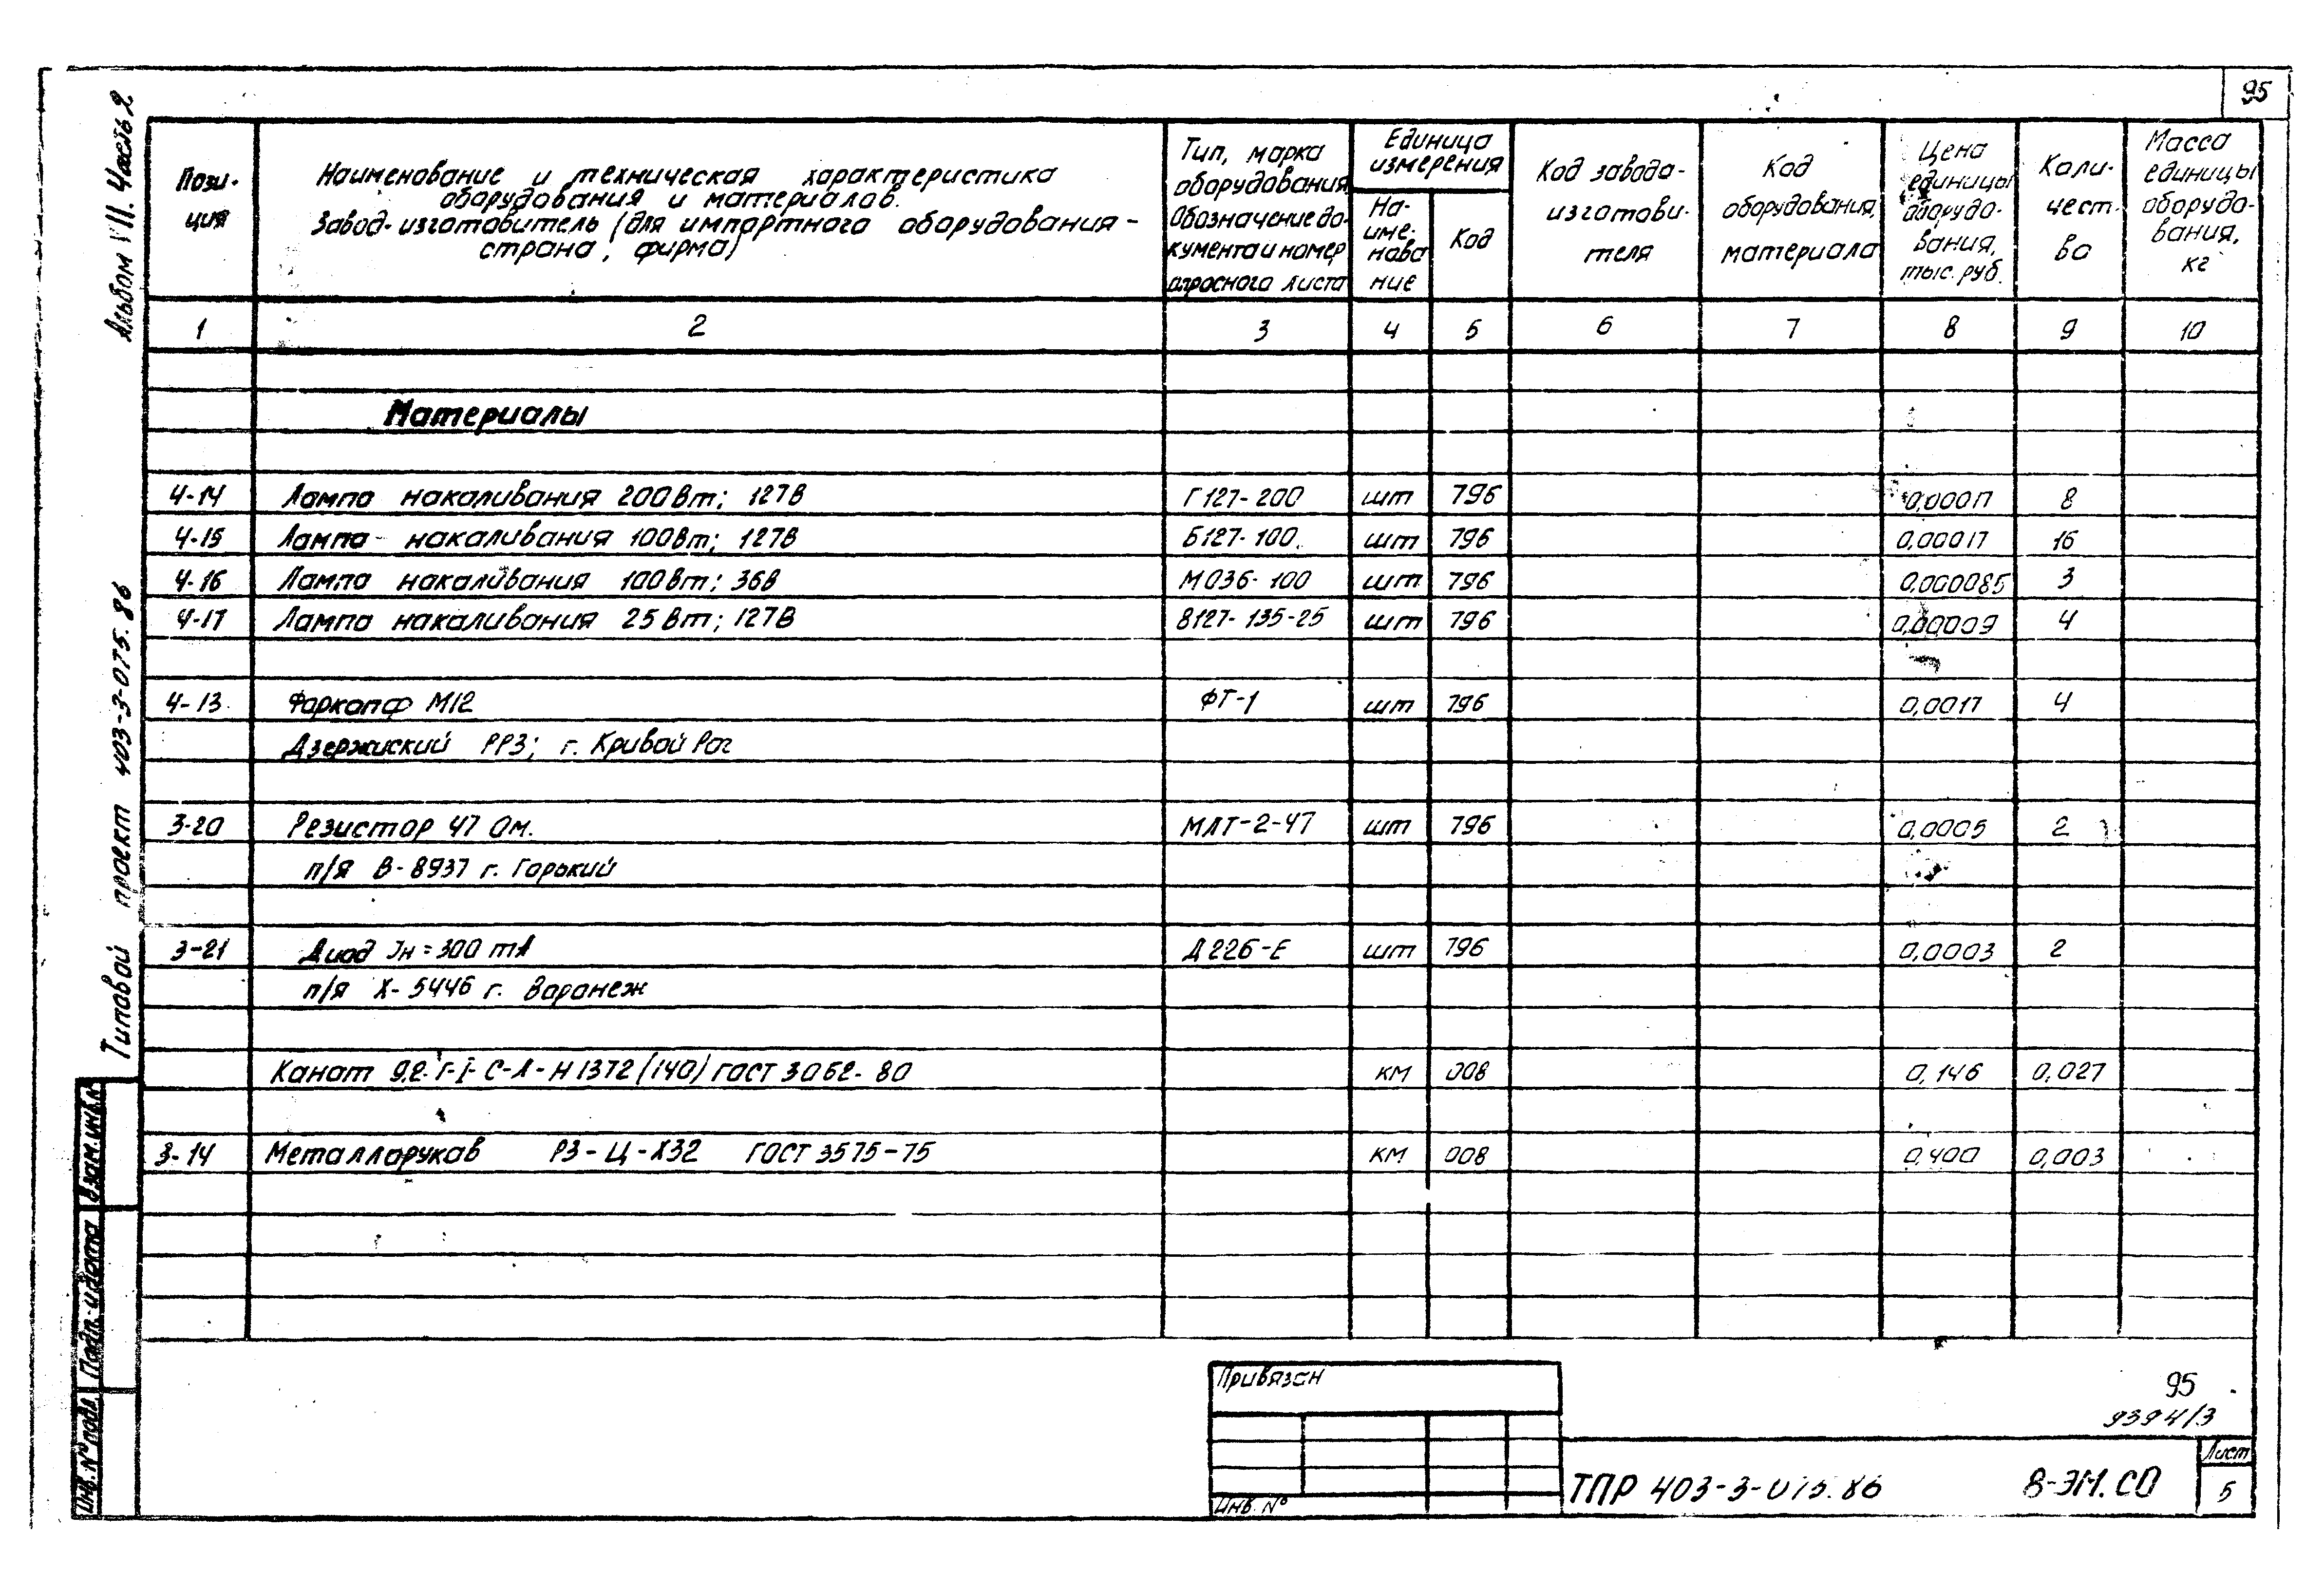 95
Альбом VII. Часть 2
Типовой проект 403-3-075.86
Пози-
ция
Наименование и техническая характеристика
оборудования и материалов.
Завод-изготовитель (для импортного оборудования -
страна, фирма)
Тип, марка
оборудования
Обозначение до-
кумента и номер
опросного листа
Единица
измерения
На-
име-
нова
ние
Код
Код завода-
изготови-
теля
Код
оборудования,
материала
Цена
единицы
оборудо-
вания,
тыс. руб.
Коли-
чест-
во
Масса
единицы
оборудо-
вания,
кг
1 2 3 4 5 6 7 8 9 10
Материалы
4-14 Лампа накаливания 200Вт; 127В Г127-200 шт 796 0,00017 8
4-15 Лампа накаливания 100Вт; 127В Б127-100. шт 796 0,00017 16
4-16 Лампа накаливания 100Вт; 36В МО36-100 шт 796 0,000085 3
4-17 Лампа накаливания 25Вт; 127В В127-135-25 шт 796 0,00009 4
4-13 Фаркопф М12 ФТ-1 шт 796 0,0017 4
Дзержиский РРЗ; г. Кривой Рог
3-20 Резистор 47 Ом. МЛТ-2-47 шт 796 0,0005 2
п/я В-8937 г. Горький
3-21 Диод Iн=300 mA Д226-Е шт 796 0,0003 2
п/я Х-5446 г. Воронеж
Канат 9,2-Г-I-С-Л-Н1372(140) ГОСТ 3062-80 км 008 0,146 0,027
3-14 Металлорукав РЗ-Ц-Х32 ГОСТ 3575-75 км 008 0,400 0,003
Взам. инв. №
Подп. и дата
Инв. № подл.
Привязан
Инв. №
95
9394/3
ТПР 403-3-075.86 8-ЭМ.СО
Лист
5